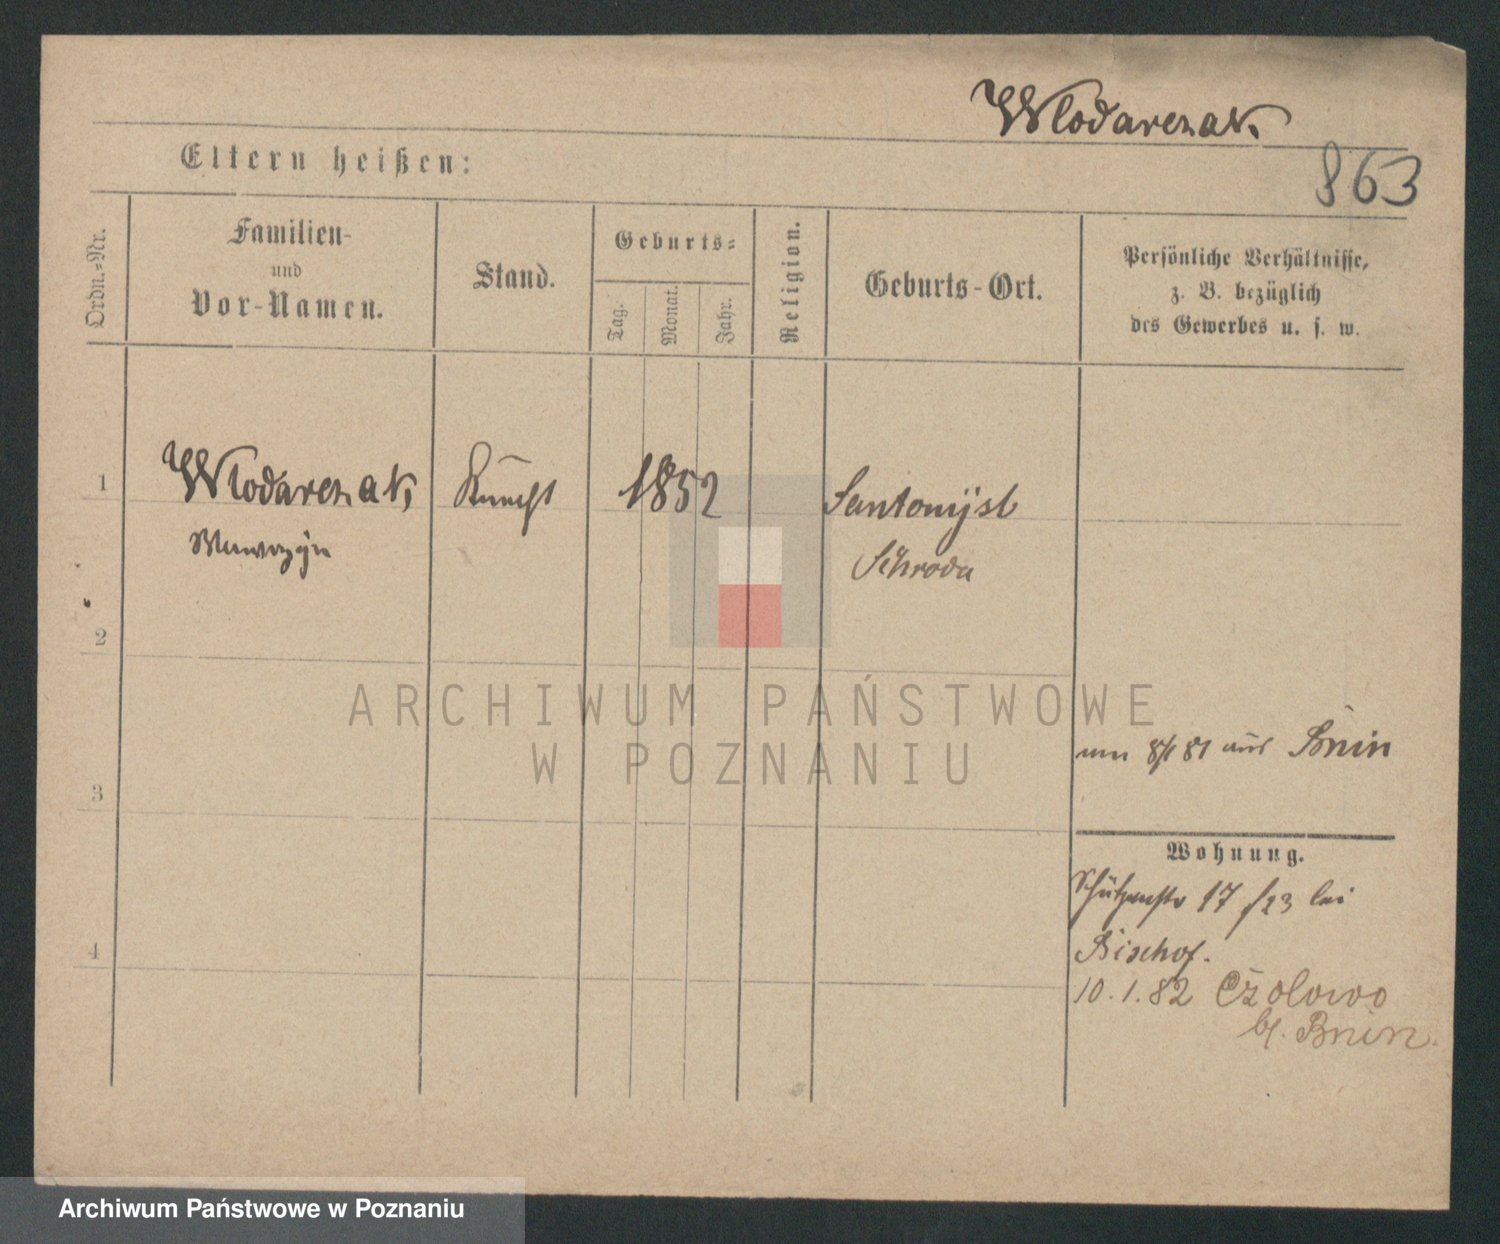 Wlodarczak.
863
Eltern heißen:
Ordn.=Nr.
Familien-
und
Vor-Namen.
Stand.
Geburts=
Tag.
Monat.
Jahr.
Religion.
Geburts-Ort.
Persönliche Verhältnisse,
z. B. bezüglich
des Gewerbes u. s. w.
1
Wlodarczak,
Knecht
1852
Santomysl
Wawrzyn
Schroda
2
ARCHIWUM PAŃSTWOWE
W POZNANIU
8/1 81 aus Bnin
3
Wohnung.
Schützenstr 17 bei
Bischof.
4
10.1.82 Czolowo
b/. Bnin.
Archiwum Państwowe w Poznaniu